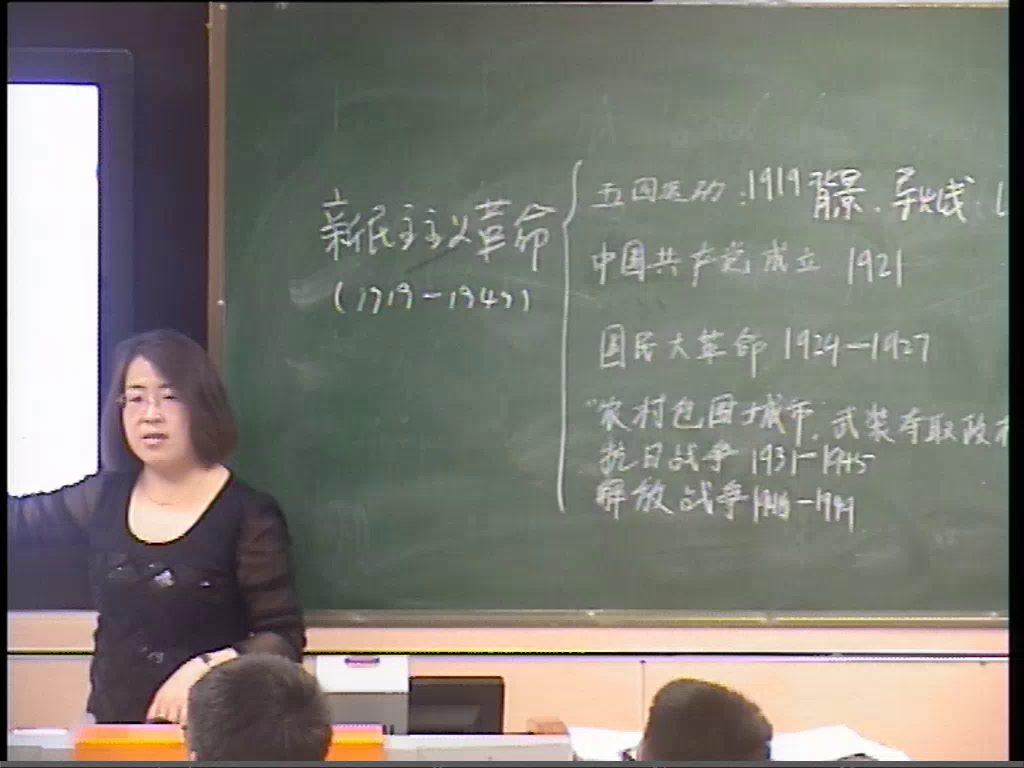 新民主主义革命
(1919-1949)
五四运动:1919 背景、导火线、
中国共产党成立 1921
国民大革命 1924-1927
"农村包围城市,武装夺取政权
抗日战争 1931-1945
解放战争 1946-1949